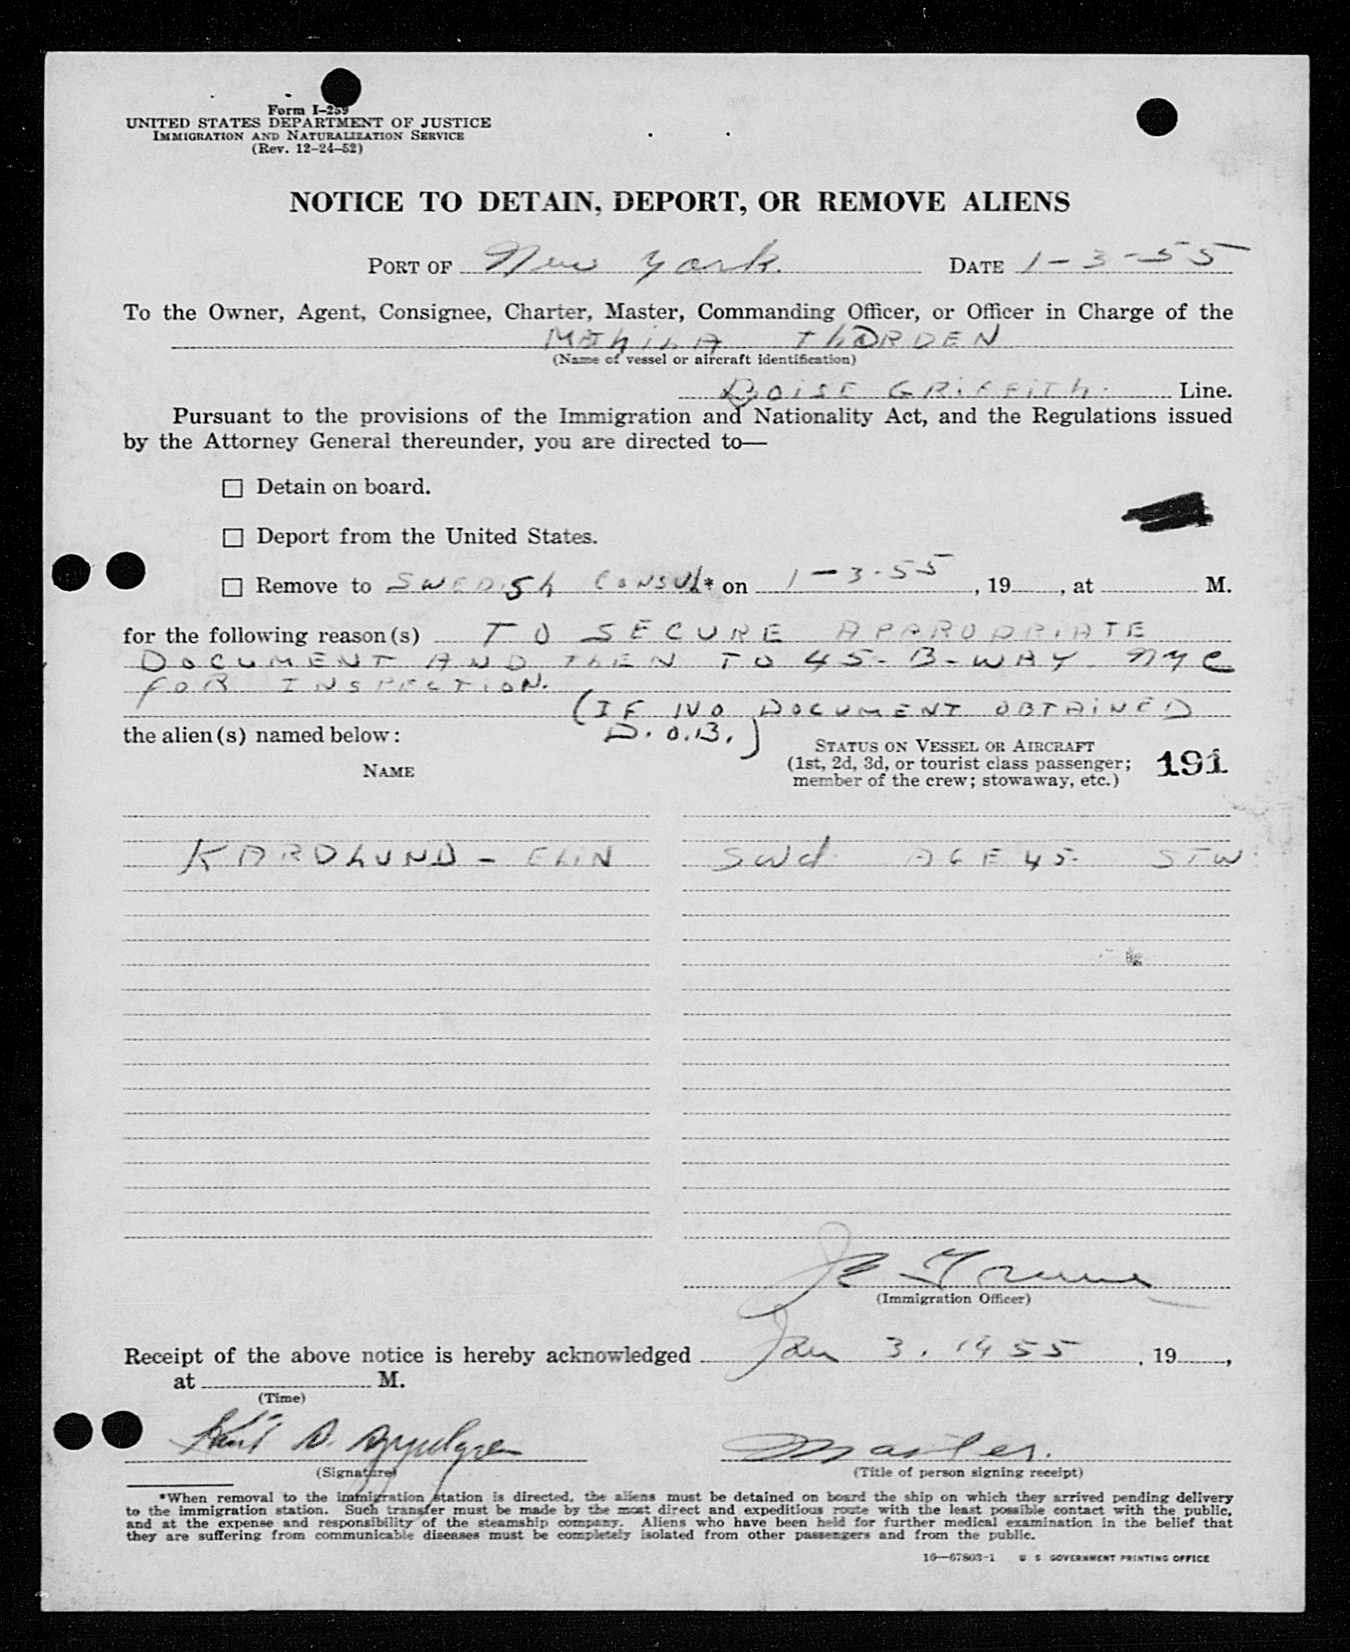 Form I-259
UNITED STATES DEPARTMENT OF JUSTICE
IMMIGRATION AND NATURALIZATION SERVICE
(Rev. 12-24-52)
NOTICE TO DETAIN, DEPORT, OR REMOVE ALIENS
PORT OF New York. DATE 1-3-55
To the Owner, Agent, Consignee, Charter, Master, Commanding Officer, or Officer in Charge of the
THORDEN
(Name of vessel or aircraft identification)
BOISE GRIFFITH. Line.
Pursuant to the provisions of the Immigration and Nationality Act, and the Regulations issued
by the Attorney General thereunder, you are directed to—
☐ Detain on board.
☐ Deport from the United States.
☐ Remove to SWEDISH CONSUL* on 1-3-55, 19, at M.
for the following reason(s) TO SECURE APPARODRIATE
DOCUMENT AND THEN TO 45-B-WAY NYC
FOR INSPECTION.
(IF NO DOCUMENT OBTAINED
the alien(s) named below: D.O.B.)
STATUS ON VESSEL OR AIRCRAFT
(1st, 2d, 3d, or tourist class passenger;
member of the crew; stowaway, etc.)
191
NAME
KARDLUND - ELIN SWd. AGE 45- STW.
(Immigration Officer)
Receipt of the above notice is hereby acknowledged Jan 3. 1955, 19,
at M.
(Time)
Master.
(Signature) (Title of person signing receipt)
*When removal to the immigration station is directed, the aliens must be detained on board the ship on which they arrived pending delivery
to the immigration station. Such transfer must be made by the most direct and expeditious route with the least possible contact with the public,
and at the expense and responsibility of the steamship company. Aliens who have been held for further medical examination in the belief that
they are suffering from communicable diseases must be completely isolated from other passengers and from the public.
16—67803-1 U S GOVERNMENT PRINTING OFFICE